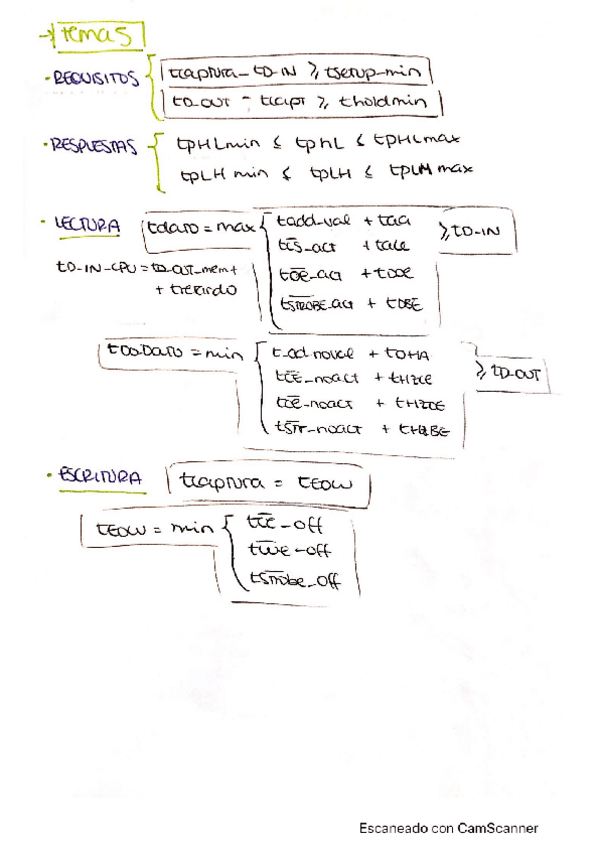 → temas
· REQUISITOS { tcaptura_tD-IN ≥ tsetup_min
tD_OUT - tcapt ≥ tholdmin
· RESPUESTAS { tpHLmin ≤ tphL ≤ tpHLmax
tpLH min ≤ tpLH ≤ tpLH max
· LECTURA tdato = max { tadd-val + taa ≥ tD-IN
tc̅s̅_act + tace
tD-IN-CPU = tD_OUT_mem + to̅e̅_act + tDOE
+ tretardo
tS̅T̅R̅O̅B̅E̅_act + tDBE
= min { t_ad noval + tOHA ≥ tD_OUT
tc̅e̅_noact + tHZCE
_noact + tHZOE
_noact + tHZBE
· ESCRITURA tcaptura = tEOW
tEOW = min { tc̅e̅_off
tw̅e̅_off
ts̅t̅r̅o̅b̅e̅_off
Escaneado con CamScanner